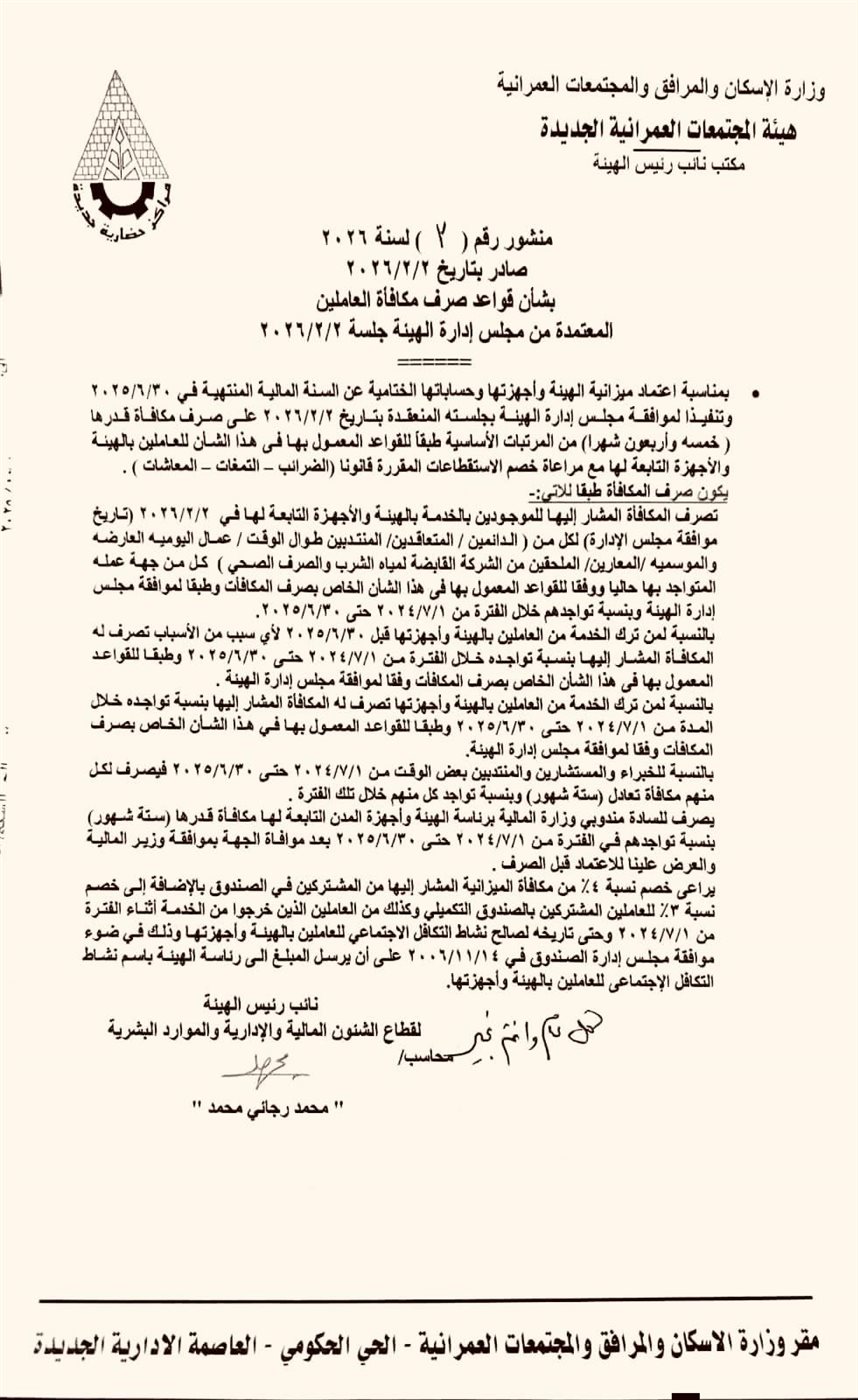 وزارة الإسكان والمرافق والمجتمعات العمرانية
هيئة المجتمعات العمرانية الجديدة
مكتب نائب رئيس الهيئة
مراكز حضارية جديدة
منشور رقم ( ٢ ) لسنة ٢٠٢٦
صادر بتاريخ ٢٠٢٦/٢/٢
بشأن قواعد صرف مكافأة العاملين
المعتمدة من مجلس إدارة الهيئة جلسة ٢٠٢٦/٢/٢
======
• بمناسبة اعتماد ميزانية الهيئة وأجهزتها وحساباتها الختامية عن السنة المالية المنتهية في ٢٠٢٥/٦/٣٠
وتنفيذا لموافقة مجلس إدارة الهيئة بجلسته المنعقدة بتاريخ ٢٠٢٦/٢/٢ على صرف مكافأة قدرها
( خمسه وأربعون شهرا) من المرتبات الأساسية طبقاً للقواعد المعمول بها في هذا الشأن للعاملين بالهيئة
والأجهزة التابعة لها مع مراعاة خصم الاستقطاعات المقررة قانونا (الضرائب – التمغات – المعاشات ) .
يكون صرف المكافأة طبقا للاتي:-
تصرف المكافأة المشار إليها للموجودين بالخدمة بالهيئة والأجهزة التابعة لها في ٢٠٢٦/٢/٢ (تاريخ
موافقة مجلس الإدارة) لكل من ( الدائمين / المتعاقدين/ المنتدبين طوال الوقت / عمال اليوميه العارضه
والموسميه /المعارين/ الملحقين من الشركة القابضة لمياه الشرب والصرف الصحي ) كل من جهة عمله
المتواجد بها حاليا ووفقا للقواعد المعمول بها في هذا الشان الخاص بصرف المكافآت وطبقا لموافقة مجلس
إدارة الهيئة وبنسبة تواجدهم خلال الفترة من ٢٠٢٤/٧/١ حتى ٢٠٢٥/٦/٣٠.
بالنسبة لمن ترك الخدمة من العاملين بالهيئة وأجهزتها قبل ٢٠٢٥/٦/٣٠ لأي سبب من الأسباب تصرف له
المكافأة المشار إليها بنسبة تواجده خلال الفترة من ٢٠٢٤/٧/١ حتى ٢٠٢٥/٦/٣٠ وطبقا للقواعد
المعمول بها في هذا الشان الخاص بصرف المكافآت وفقا لموافقة مجلس إدارة الهيئة .
بالنسبة لمن ترك الخدمة من العاملين بالهيئة وأجهزتها تصرف له المكافأة المشار إليها بنسبة تواجده خلال
المدة من ٢٠٢٤/٧/١ حتى ٢٠٢٥/٦/٣٠ وطبقا للقواعد المعمول بها في هذا الشأن الخاص بصرف
المكافآت وفقا لموافقة مجلس إدارة الهيئة.
بالنسبة للخبراء والمستشارين والمنتدبين بعض الوقت من ٢٠٢٤/٧/١ حتى ٢٠٢٥/٦/٣٠ فيصرف لكل
منهم مكافأة تعادل (ستة شهور) وبنسبة تواجد كل منهم خلال تلك الفترة .
يصرف للسادة مندوبي وزارة المالية برئاسة الهيئة وأجهزة المدن التابعة لها مكافأة قدرها (ستة شهور)
بنسبة تواجدهم في الفترة من ٢٠٢٤/٧/١ حتى ٢٠٢٥/٦/٣٠ بعد موافاة الجهة بموافقة وزير المالية
والعرض علينا للاعتماد قبل الصرف .
يراعى خصم نسبة ٤٪ من مكافأة الميزانية المشار إليها من المشتركين في الصندوق بالإضافة إلى خصم
نسبة ٣٪ للعاملين المشتركين بالصندوق التكميلي وكذلك من العاملين الذين خرجوا من الخدمة أثناء الفترة
من ٢٠٢٤/٧/١ وحتى تاريخه لصالح نشاط التكافل الاجتماعي للعاملين بالهيئة وأجهزتها وذلك في ضوء
موافقة مجلس إدارة الصندوق في ٢٠٠٦/١١/١٤ على أن يرسل المبلغ الى رئاسة الهيئة باسم نشاط
التكافل الإجتماعى للعاملين بالهيئة وأجهزتها.
نائب رئيس الهيئة
لقطاع الشئون المالية والإدارية والموارد البشرية
كل عام وانتم بخير
محاسب/
" محمد رجائي محمد "
مقر وزارة الاسكان والمرافق والمجتمعات العمرانية - الحي الحكومي - العاصمة الادارية الجديدة